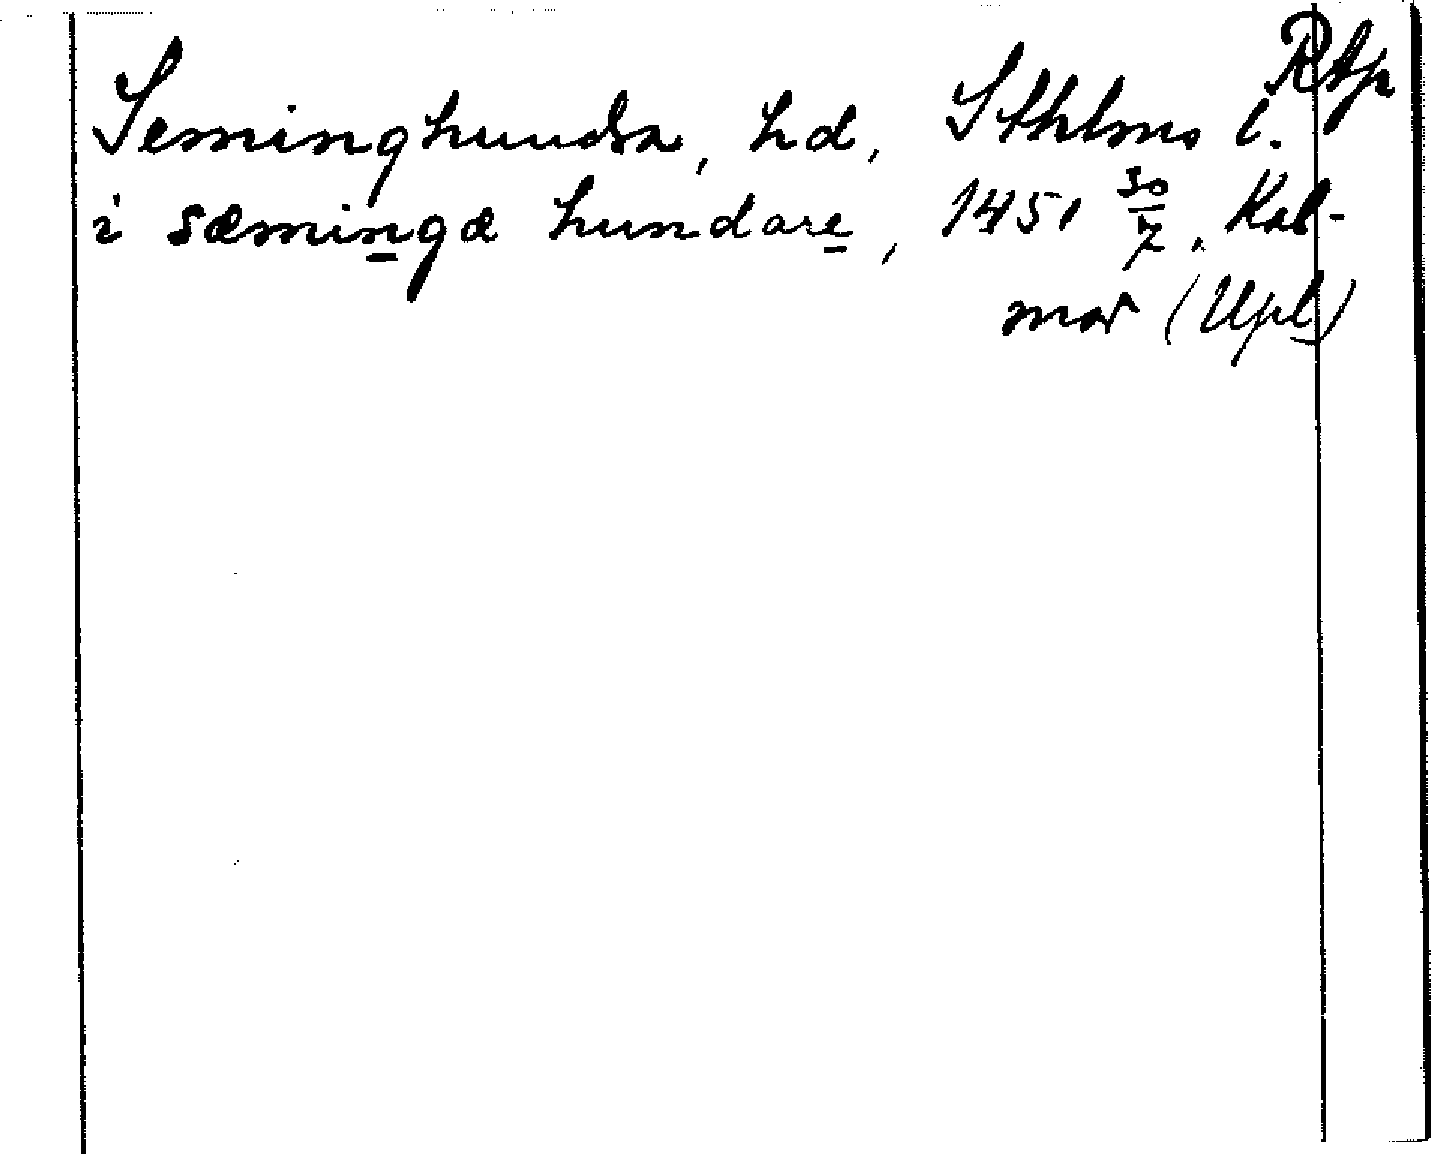 Rtp
Seminghundra, hd, Sthlms l.
i sæmingæ hundare, 1451 30/7, Kal-
mar (Upl)